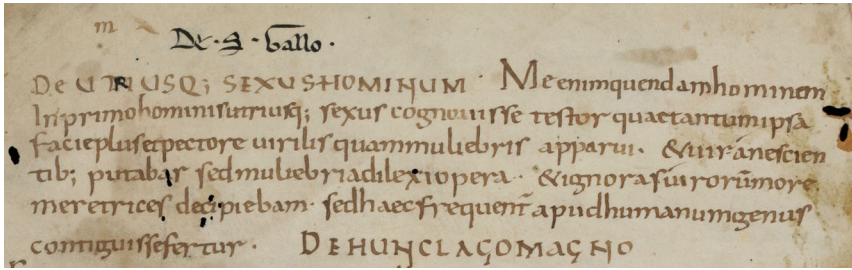 m
De · S · Gallo ·
DE UTRIUSQ; SEXUS HOMINUM · Me enim quendam hominem
In primo hominis utriusq; sexus cognouisse testor qua&tantum ipsa
facie plus et pectore uirilis quam muliebris apparui. & uirū nescien
tib; putabar sed muliebria dilexi opera · & ignoras uirorū more
meretrices decipiebam · sed haec frequent̄ apud humanum genus
contiguisse fertur · DE HUNCLACO MAGNO